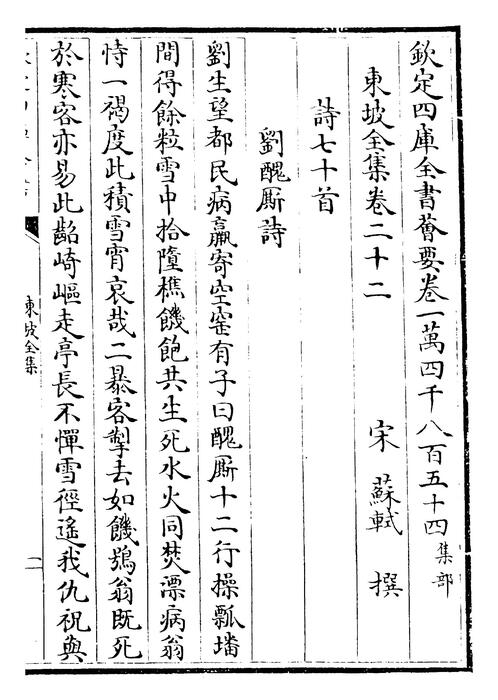 欽定四庫全書薈要卷一萬四千八百五十四集部
東坡全集卷二十二
宋 蘇軾 撰
詩七十首
劉醜廝詩
劉生望都民病羸寄空窑有子曰醜廝十二行操瓢墦
間得餘粒雪中拾墮樵饑飽共生死水火同焚漂病翁
恃一褐度此積雪宵哀哉二暴客掣去如饑鴞翁既死
於寒客亦易此齠崎嶇走亭長不憚雪徑遙我仇祝與
東坡全集
一